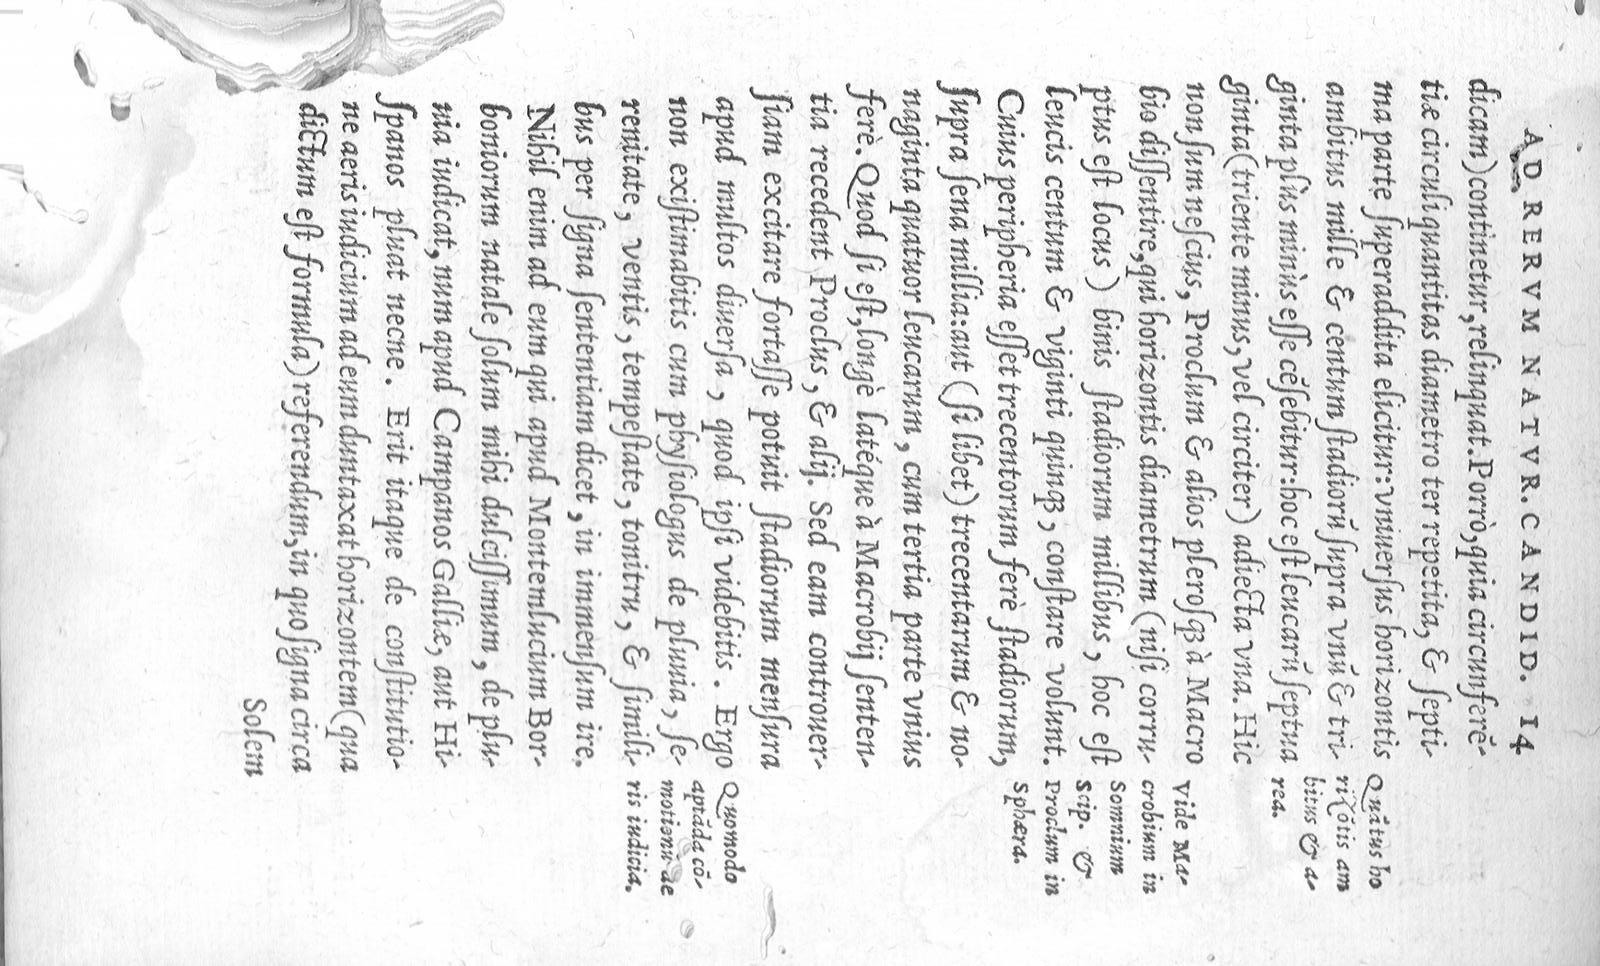 AD RERVM NATVR. CANDID. 14
dicam) continetur, relinquat. Porrò, quia circunferẽ-
tiæ circuli quantitas diametro ter repetita, & ſepti-
ma parte ſuperaddita elicitur: vniuerſus horizontis
ambitus mille & centum ſtadiorũ ſupra vnũ & tri-
ginta plùs minùs eſſe cẽſebitur: hoc eſt leucarũ ſeptua
ginta (triente minus, vel circiter) adiecta vna. Hic
non ſum neſcius, Proclum & alios pleroſq3 à Macro
bio diſſentire, qui horizontis diametrum (niſi corru-
ptus eſt locus) binis ſtadiorum millibus, hoc eſt
leucis centum & viginti quinq3, conſtare volunt.
Cuius peripheria eſſet trecentorum ferè ſtadiorum,
ſupra ſena millia: aut (ſi libet) trecentarum & no-
naginta quatuor leucarum, cum tertia parte vnius
ferè. Quod ſi eſt, longè latéque à Macrobij ſenten-
tia recedent Proclus, & alij. Sed eam controuer-
ſiam excitare fortaſſe potuit ſtadiorum menſura
apud multos diuerſa, quod ipſi videbitis. Ergo
non exiſtimabitis cum phyſiologus de pluuia, ſe-
renitate, ventis, tempeſtate, tonitru, & ſimili-
bus per ſigna ſententiam dicet, in immenſum ire.
Nihil enim ad eum qui apud Montemlucium Bor-
boniorum natale ſolum mihi dulciſſimum, de plu-
uia iudicat, num apud Campanos Galliæ, aut Hi-
ſpanos pluat necne. Erit itaque de conſtitutio-
ne aeris iudicium ad eum duntaxat horizontem (qua
dictum eſt formula) referendum, in quo ſigna circa
Solem
Quãtus ho
rizõtis am
bitus & a-
rea.
Vide Ma-
crobium in
Somnium
Scip. &
Proclum in
Sphæra.
Quomodo
aptãda cõ-
motionũ ae
ris iudicia.